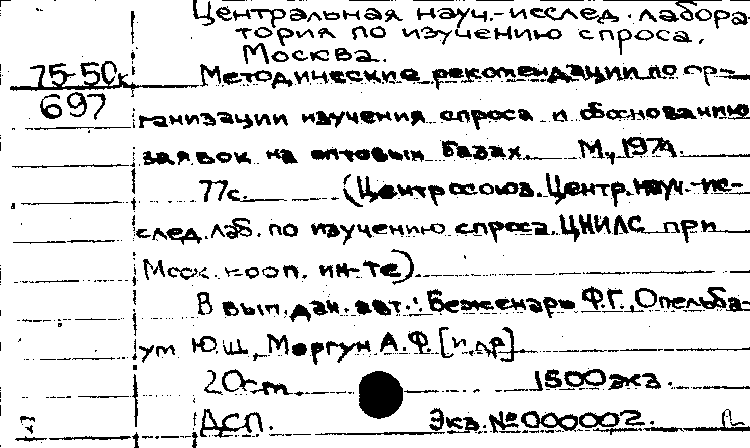 Центральная науч.-исслед. лабора
тория по изучению спроса,
Москва.
75-50к Методические рекомендации по ор-
697
ганизации изучения спроса и обоснованию
заявок на оптовых базах. М., 1974.
77с. (Центросоюз. Центр. науч.-ис-
след. лаб. по изучению спроса ЦНИЛС при
Моск. кооп. ин-те)
В вып. дан. авт.: Беженарь Ф.Г., Опельба-
ум Ю.Ш., Моргун А.Ф. [и др]
20cm. 1500 экз.
ДСП. Экз. № 000002.